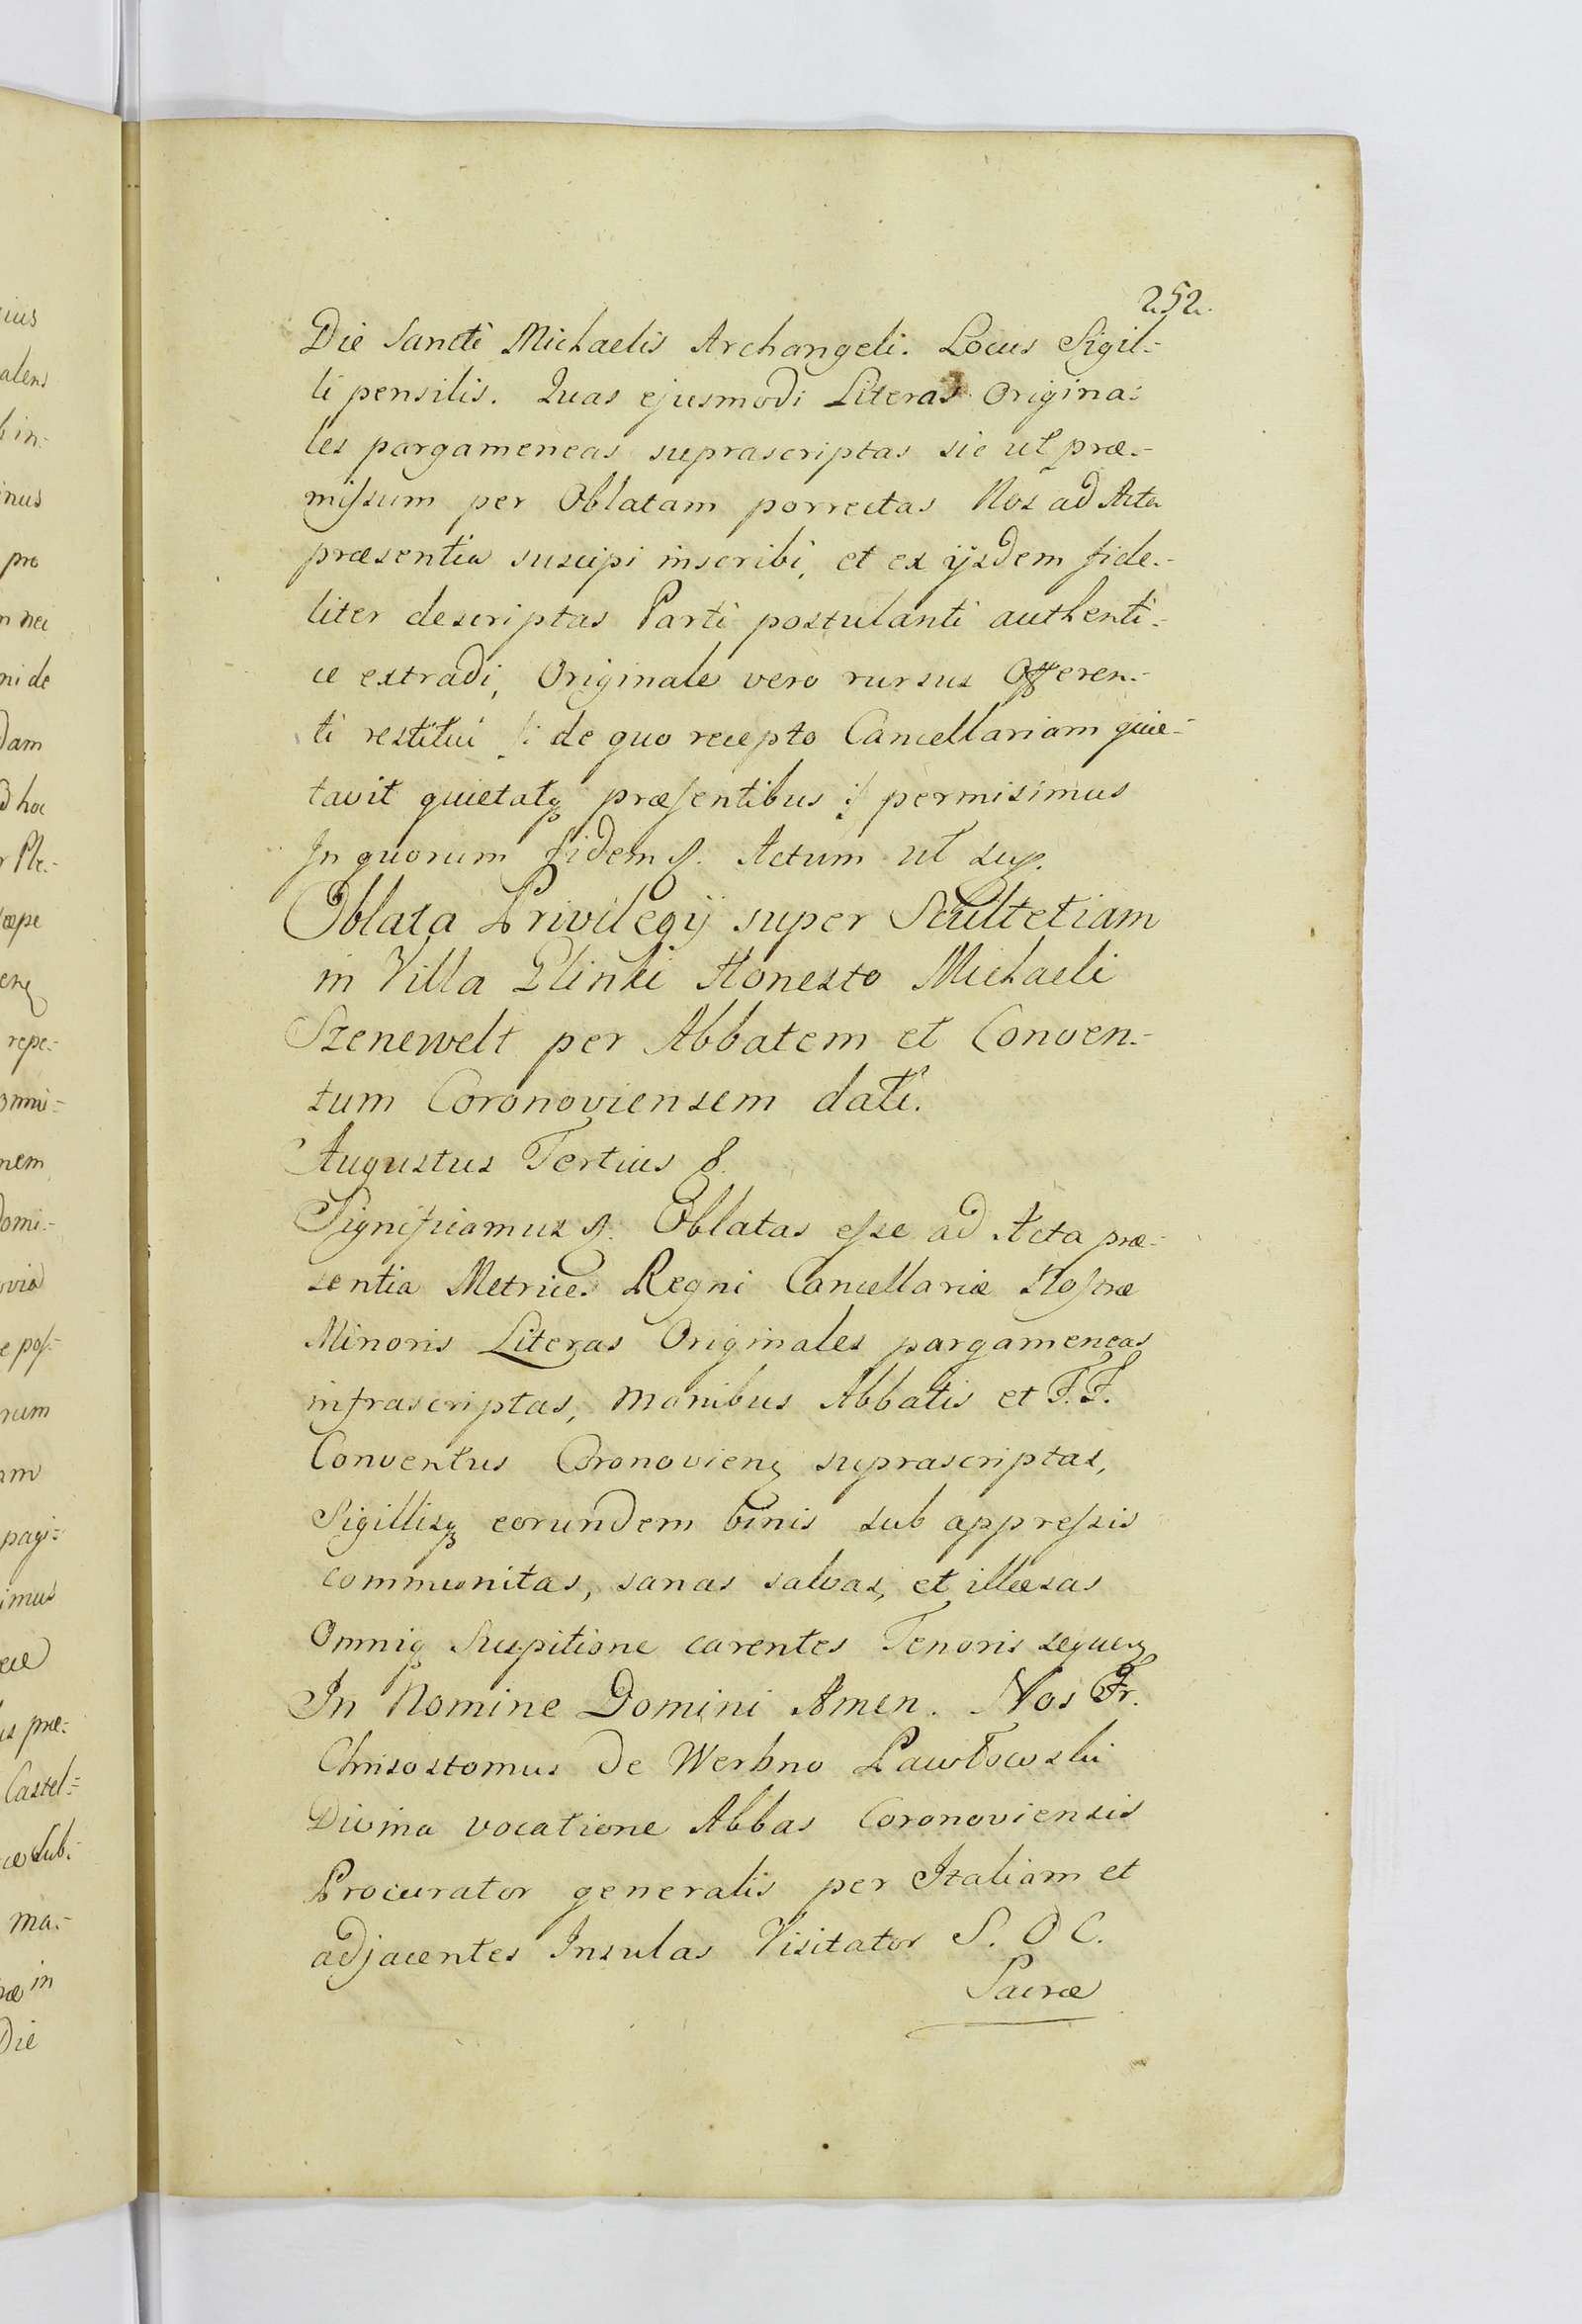 252.
Die Sancti Michaelis Archangeli. Locus Sigil=
li pensilis. Quas ejusmodi Literas Origina=
les pargameneas suprascriptas sic ut præ-
missum per Oblatam porrectas Nos ad Acta
præsentia suscipi inscribi, et ex ijsdem fide-
liter descriptas Parti postulanti authenti-
ce extradi, Originale vero rursus Offeren-
ti restitui /: de quo recepto Cancellariam quie-
tavit quietatq præsentibus :/ permisimus
In quorum fidem &. Actum ut sup.
Oblata Privilegij super Scultetiam
in Villa Glinki Honesto Michaeli
Szenewelt per Abbatem et Conven-
tum Coronoviensem dati.
Augustus Tertius &.
Significamus &. Oblatas esse ad Acta præ-
sentia Metrices Regni Cancellariæ Nostræ
Minoris Literas Originales pargameneas
infrascriptas, manibus Abbatis et F.F.
Conventus Coronovien suprascriptas,
Sigillisq eorundem binis sub appressis
communitas, sanas salvas, et illæsas
Omniq Suspitione carentes Tenoris sequen
In Nomine Domini Amen. Nos Fr.
Chrisostomus de Werbno Pawłowski
Divina vocatione Abbas Coronoviensis
Procurator generalis per Italiam et
adjacentes Insulas Visitator S. O C.
Sacræ
ius
alens
inus
pro
ni de
dam
d hoc
sæpe
repe-
omni=
nem
Domi-
ovia
e pos-
rum
am
pagi=
imus
is præ=
Castel=
ce Sub=
ma-
in
Die